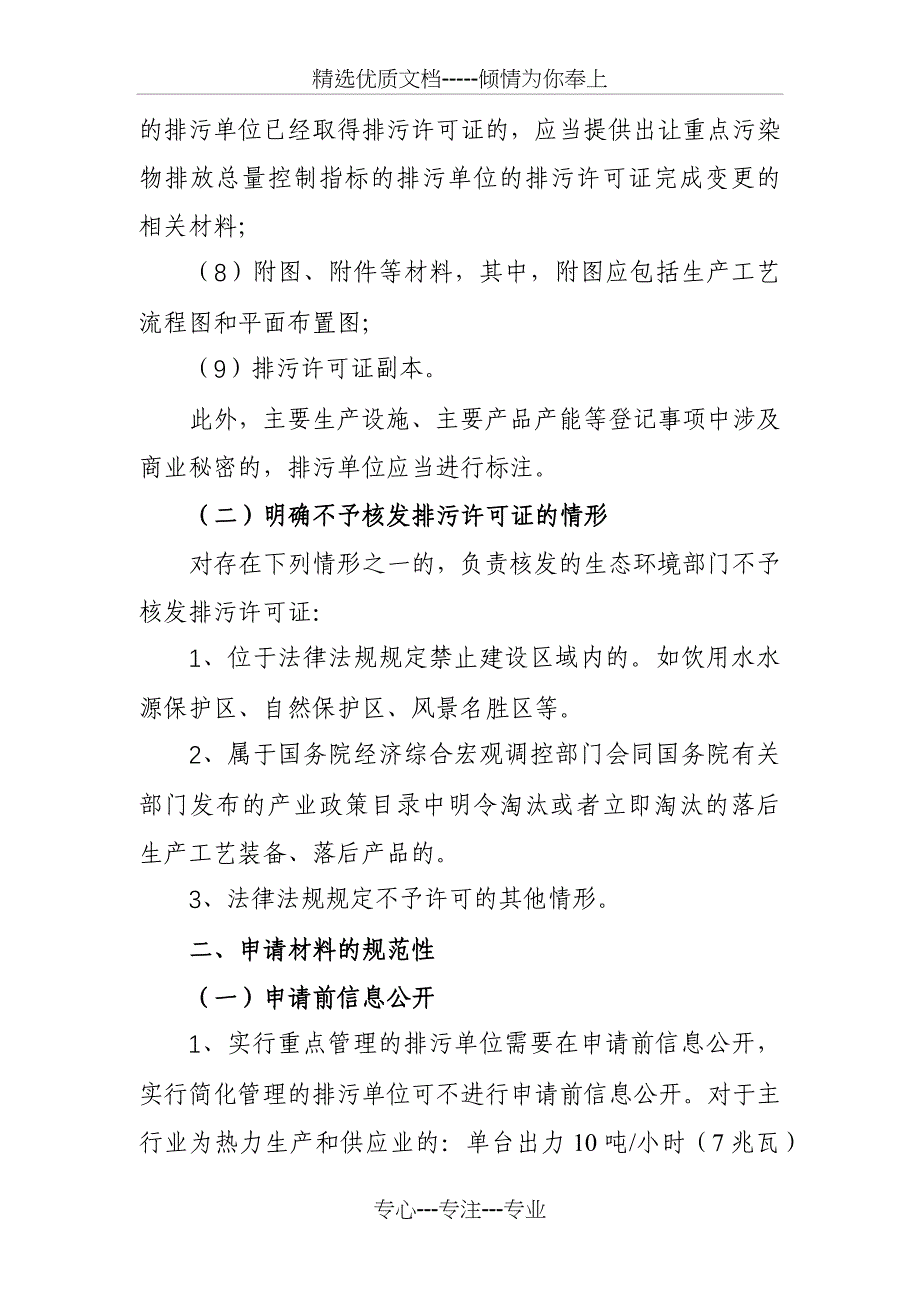 精选优质文档-----倾情为你奉上
的排污单位已经取得排污许可证的，应当提供出让重点污染
物排放总量控制指标的排污单位的排污许可证完成变更的
相关材料；
（8）附图、附件等材料，其中，附图应包括生产工艺
流程图和平面布置图；
（9）排污许可证副本。
此外，主要生产设施、主要产品产能等登记事项中涉及
商业秘密的，排污单位应当进行标注。
（二）明确不予核发排污许可证的情形
对存在下列情形之一的，负责核发的生态环境部门不予
核发排污许可证：
1、位于法律法规规定禁止建设区域内的。如饮用水水
源保护区、自然保护区、风景名胜区等。
2、属于国务院经济综合宏观调控部门会同国务院有关
部门发布的产业政策目录中明令淘汰或者立即淘汰的落后
生产工艺装备、落后产品的。
3、法律法规规定不予许可的其他情形。
二、申请材料的规范性
（一）申请前信息公开
1、实行重点管理的排污单位需要在申请前信息公开，
实行简化管理的排污单位可不进行申请前信息公开。对于主
行业为热力生产和供应业的：单台出力 10 吨/小时（7 兆瓦）
专心---专注---专业